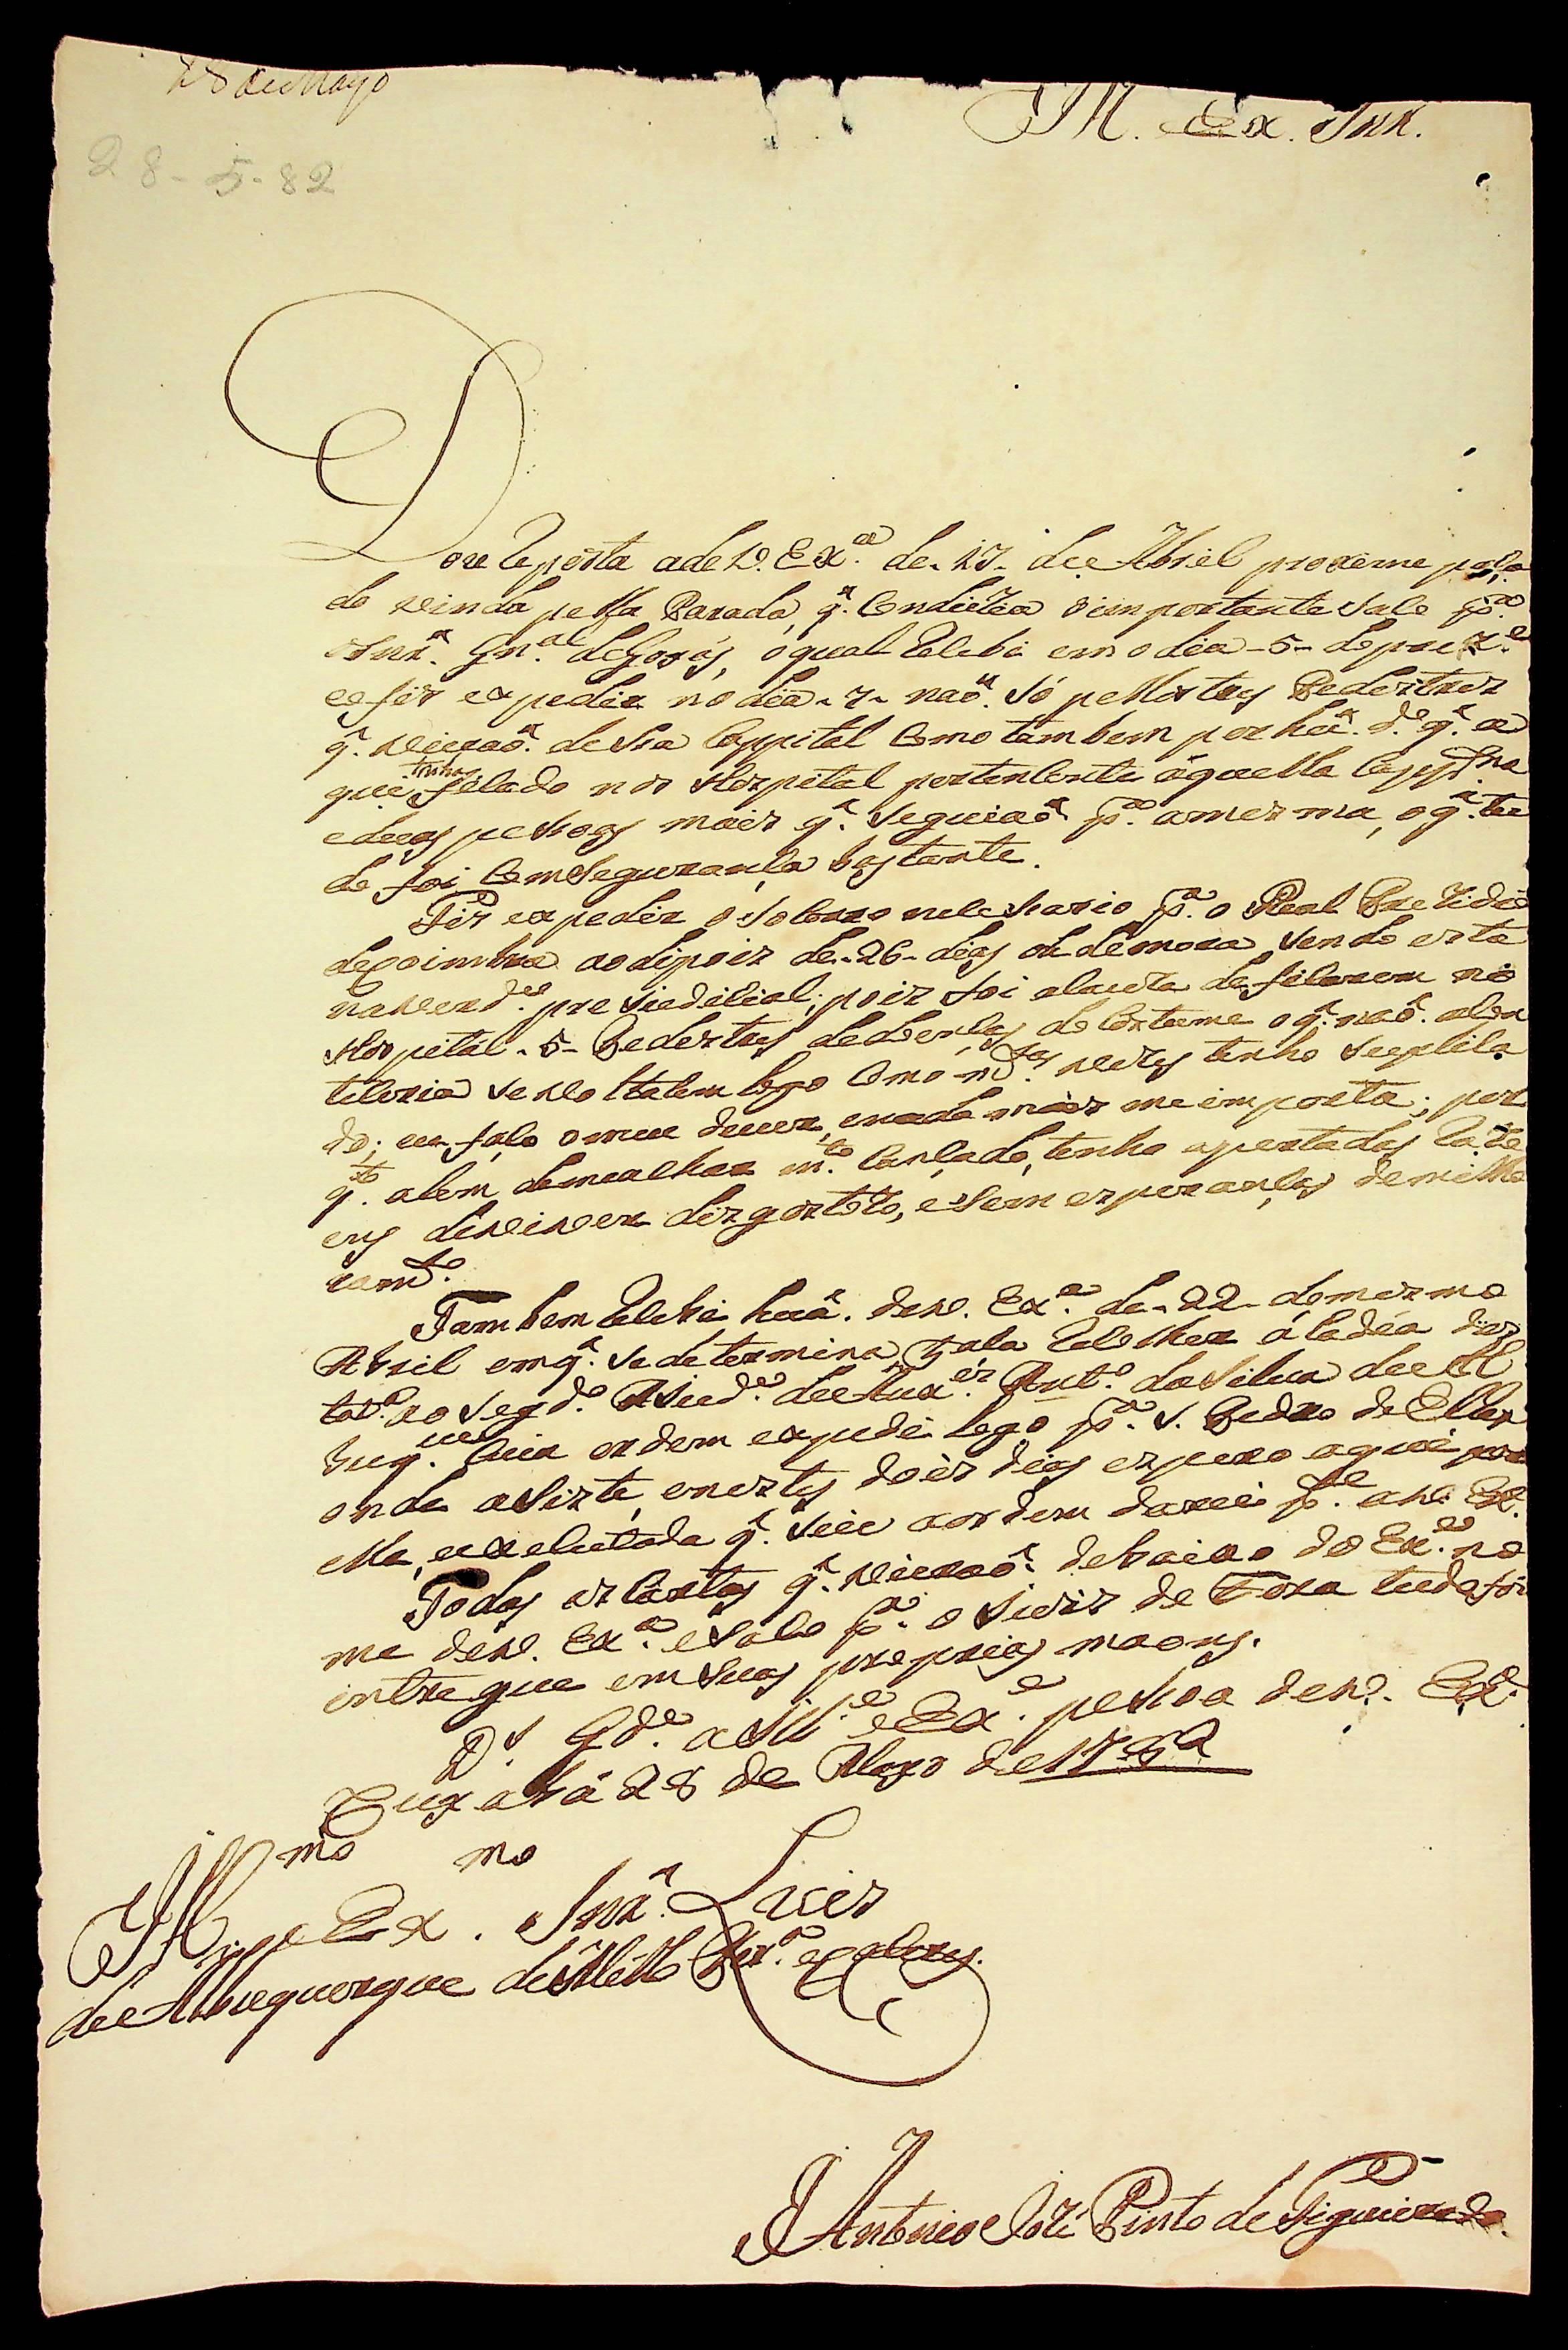 28 de Mayo
Ill. Ex. Snr.
28-5-82
Dou reposta a de V. Ex.ª de 17 de Abril proxime pasa
do vinda pella Parada, q. Conduzia o importante saco p.ª
o Snr. Gn.al de Goyáz, o qual recebi em o dia -5- do prez.e
e o fis expedir no dia -7- naõ só pellos tres Pedestres
q. vieraõ desta Cappital Como tambem por huã d.e q. a
qui tinha ficado no Hospital pertencente áquella Cappt.na
e duas pessoas mais q. seguiaõ p.ª a mesma, o q. tu
do foi Com Segurança bastante.
Fis expedir o Socorro necessario p.ª o Real Prezidio
de Coimbra ao dipois de -26- dias de demora, sendo esta
na verd.e prejudicial; pois foi a cauza de ficarem no
Hospital -5- Pedestres de doenças do Costume o q. naõ acon
teceria se voltasem logo Como m.tas vezes tenho suplica
do; eu faço o meu dever, e nada mais me importa; por
q.to alem de me achar m.to Cançado, tenho apertadas razo
ens de viver disgostozo, e sem esperanças de milho
ram.to
Tambem recebi huã de V. Ex.ª de -22- do mesmo
Abril em q. se determina faça recolher á Cadéa des
ta V.ª ao Seg.do Ajud.e de Aux.es Ant.o da Silva de Al
buq.ue Cuia ordem expedi logo p.ª S. Pedro de El Rey
onde asiste, e nestes dois dias espero aqui por
elle, e executada q. seie a ordem darei p.te a V. Ex.ª
Todas as Cartas q. vieraõ debaixo do Ex.o no
me de V. Ex.ª e Saco p.ª o Juis de Fora tudo foi
intregue em suas proprias maons.
D.s G.de a Ill.e e Ex.e pessoa de V. Ex.ª
Cuyabá 28 de Mayo de 1782
Ill.mo e Ex.mo Snr. Luis
de Albuquerque de Mello Per.ª e Caceres.
Antonio Jozé Pinto de Figueiredo.